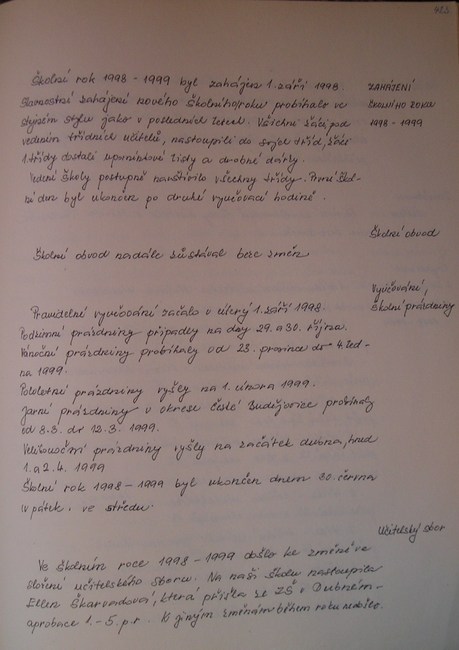 Školní rok 1998 - 1999 byl zahájen 1. září 1998.
ZAHÁJENÍ
Slavnostní zahájení nového školního roku probíhalo ve
ŠKOLNÍHO ROKU
stejném stylu jako v posledních letech. Všichni žáci pod
1998 - 1999
vedením třídních učitelů, nastoupili do svých tříd, žáci
1. třídy dostali upomínkové listy a drobné dárky.
Vedení školy postupně navštívilo všechny třídy. První škol-
ní den byl ukončen po druhé vyučovací hodině.
Školní obvod
Školní obvod nadále zůstával beze změn
Vyučování,
školní prázdniny
Pravidelné vyučování začalo v úterý 1. září 1998.
Podzimní prázdniny připadly na dny 29. a 30. října.
Vánoční prázdniny probíhaly od 23. prosince do 4. led-
na 1999.
Pololetní prázdniny vyšly na 1. února 1999.
Jarní prázdniny v okrese České Budějovice probíhaly
od 8.3. do 12.3. 1999.
Velikonoční prázdniny vyšly na začátek dubna, hned
1. a 2.4. 1999
Školní rok 1998 - 1999 byl ukončen dnem 30. června
v pátek. ve středu.
Učitelský sbor
Ve školním roce 1998 - 1999 došlo ke změně ve
složení učitelského sboru. Na naši školu nastoupila
Ellen Škarvadová, která přišla ze ZŠ v Dubném -
aprobace 1. - 5. p.r. K jiným změnám během roku nedošlo.